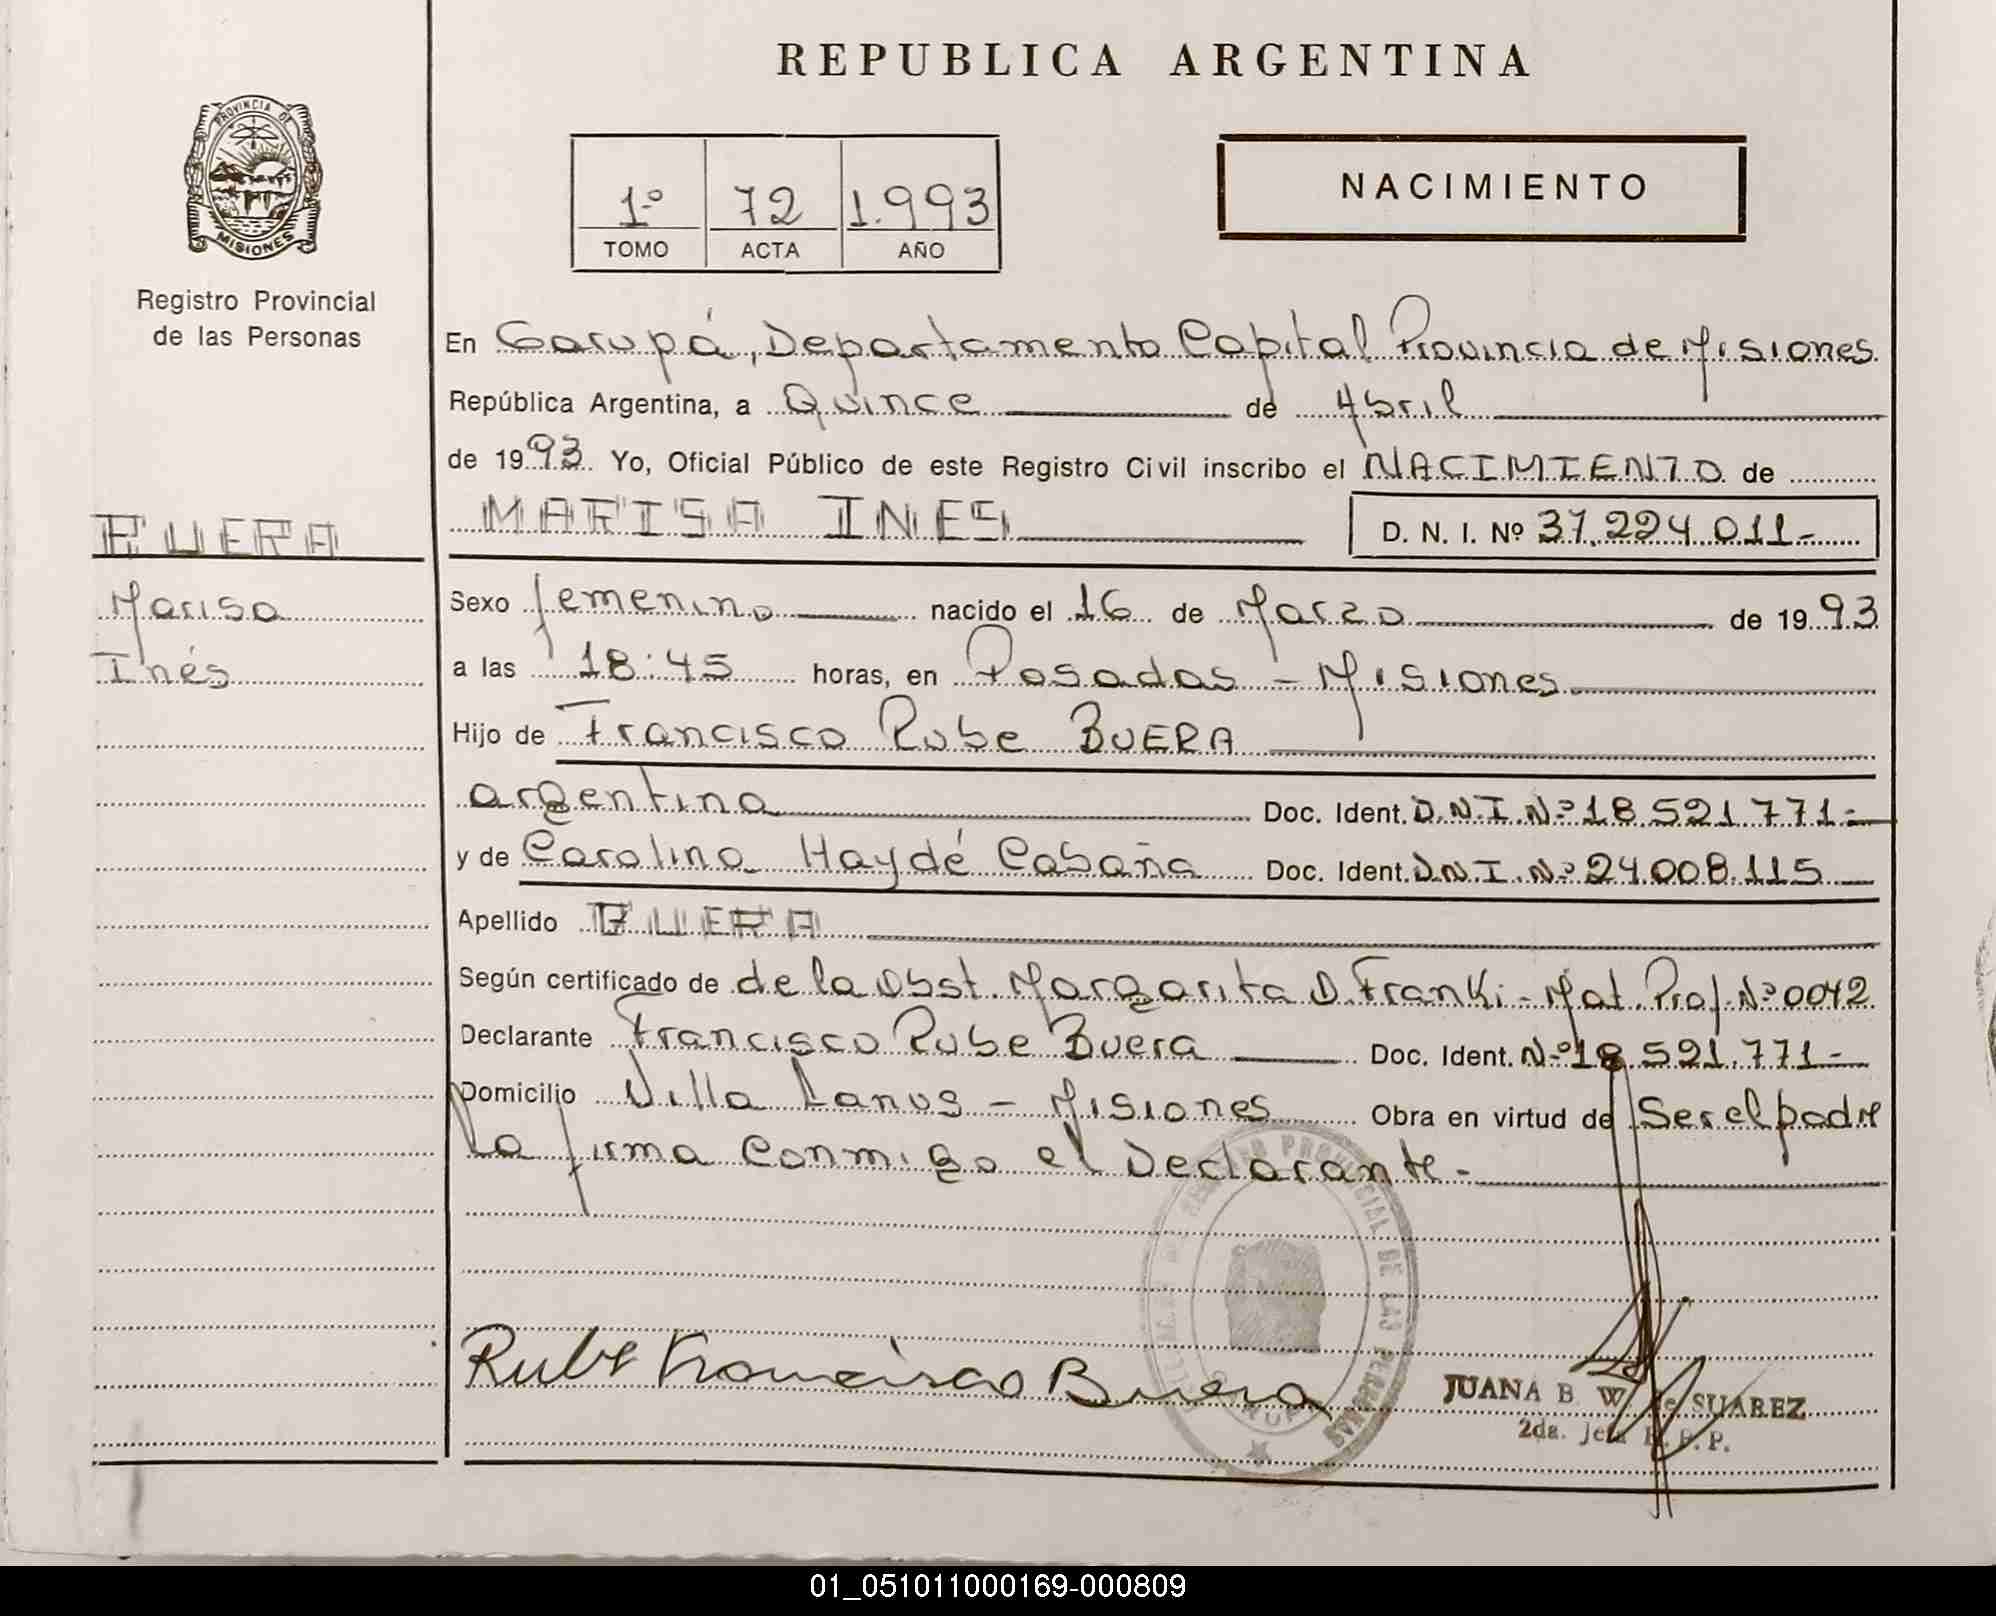 REPUBLICA ARGENTINA
PROVINCIA DE
MISIONES
Registro Provincial
de las Personas
1º 72 1.993
TOMO ACTA AÑO
NACIMIENTO
En Garupá, Departamento Capital Provincia de Misiones
República Argentina, a Quince de Abril
de 1993 Yo, Oficial Público de este Registro Civil inscribo el NACIMIENTO de
MARISA INES D. N. I. Nº 37.224.011-
BUERA
Marisa
Inés
Sexo femenino nacido el 16 de Marzo de 1993
a las 18:45 horas, en Posadas - Misiones
Hijo de Francisco Rube BUERA
argentina Doc. Ident. D.N.I.Nº 18.521.771-
y de Carolina Haydé Cabaña Doc. Ident. D.N.I.Nº 24.008.115
Apellido BUERA
Según certificado de de la Obst. Margarita D. Franki - Mat. Prof. Nº 0042
Declarante Francisco Rube Buera Doc. Ident. Nº 18.521.771-
Domicilio Villa Lanus - Misiones Obra en virtud de Ser el padre
La firma Conmigo el Declarante.-
PROVINCIAL DE LAS PERSONAS
Rube Francisco Buera
JUANA B. W. de SUAREZ
2da. Jefa R. P. P.
01_051011000169-000809